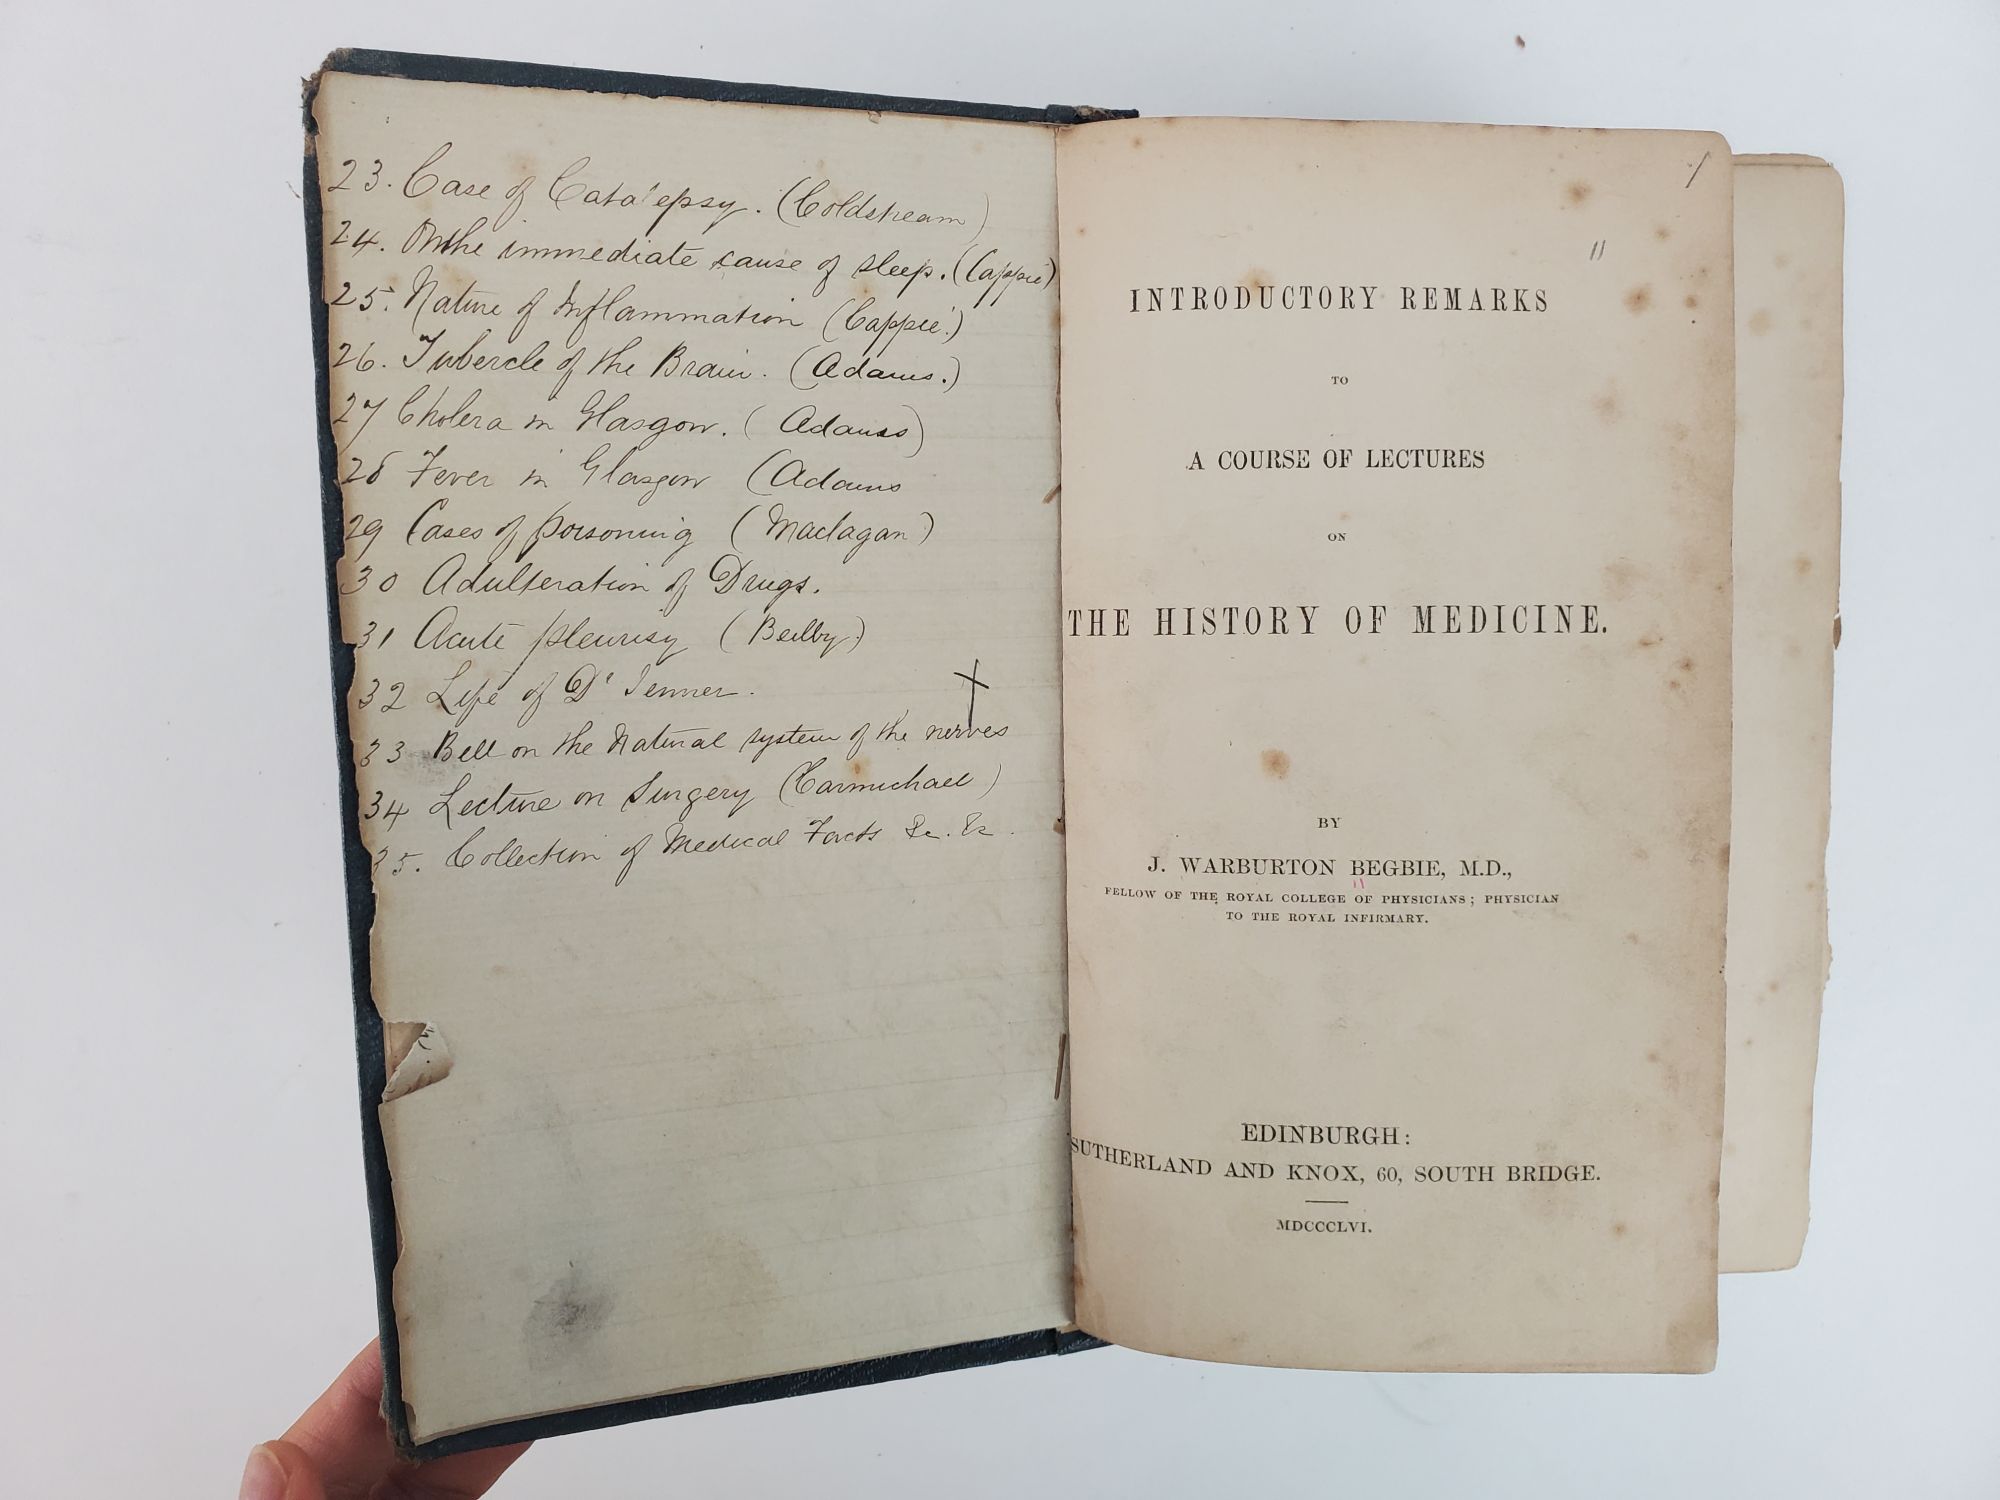 23. Case of Catalepsy. (Coldstream)
24. On the immediate cause of sleep. (Cappie)
25. Nature of Inflammation (Cappie.)
26. Tubercle of the Brain. (Adams.)
27 Cholera in Glasgow. (Adams)
28 Fever in Glasgow (Adams
29 Cases of poisoning (Maclagan)
30 Adulteration of Drugs.
31 Acute pleurisy (Beilby.)
32 Life of Dr Jenner.
33 Bell on the Natural system of the nerves
34 Lecture on Surgery (Carmichael)
35. Collection of Medical Facts &c. &c.
1
11
INTRODUCTORY REMARKS
TO
A COURSE OF LECTURES
ON
THE HISTORY OF MEDICINE.
BY
J. WARBURTON BEGBIE, M.D.,
FELLOW OF THE ROYAL COLLEGE OF PHYSICIANS; PHYSICIAN
TO THE ROYAL INFIRMARY.
EDINBURGH:
SUTHERLAND AND KNOX, 60, SOUTH BRIDGE.
MDCCCLVI.